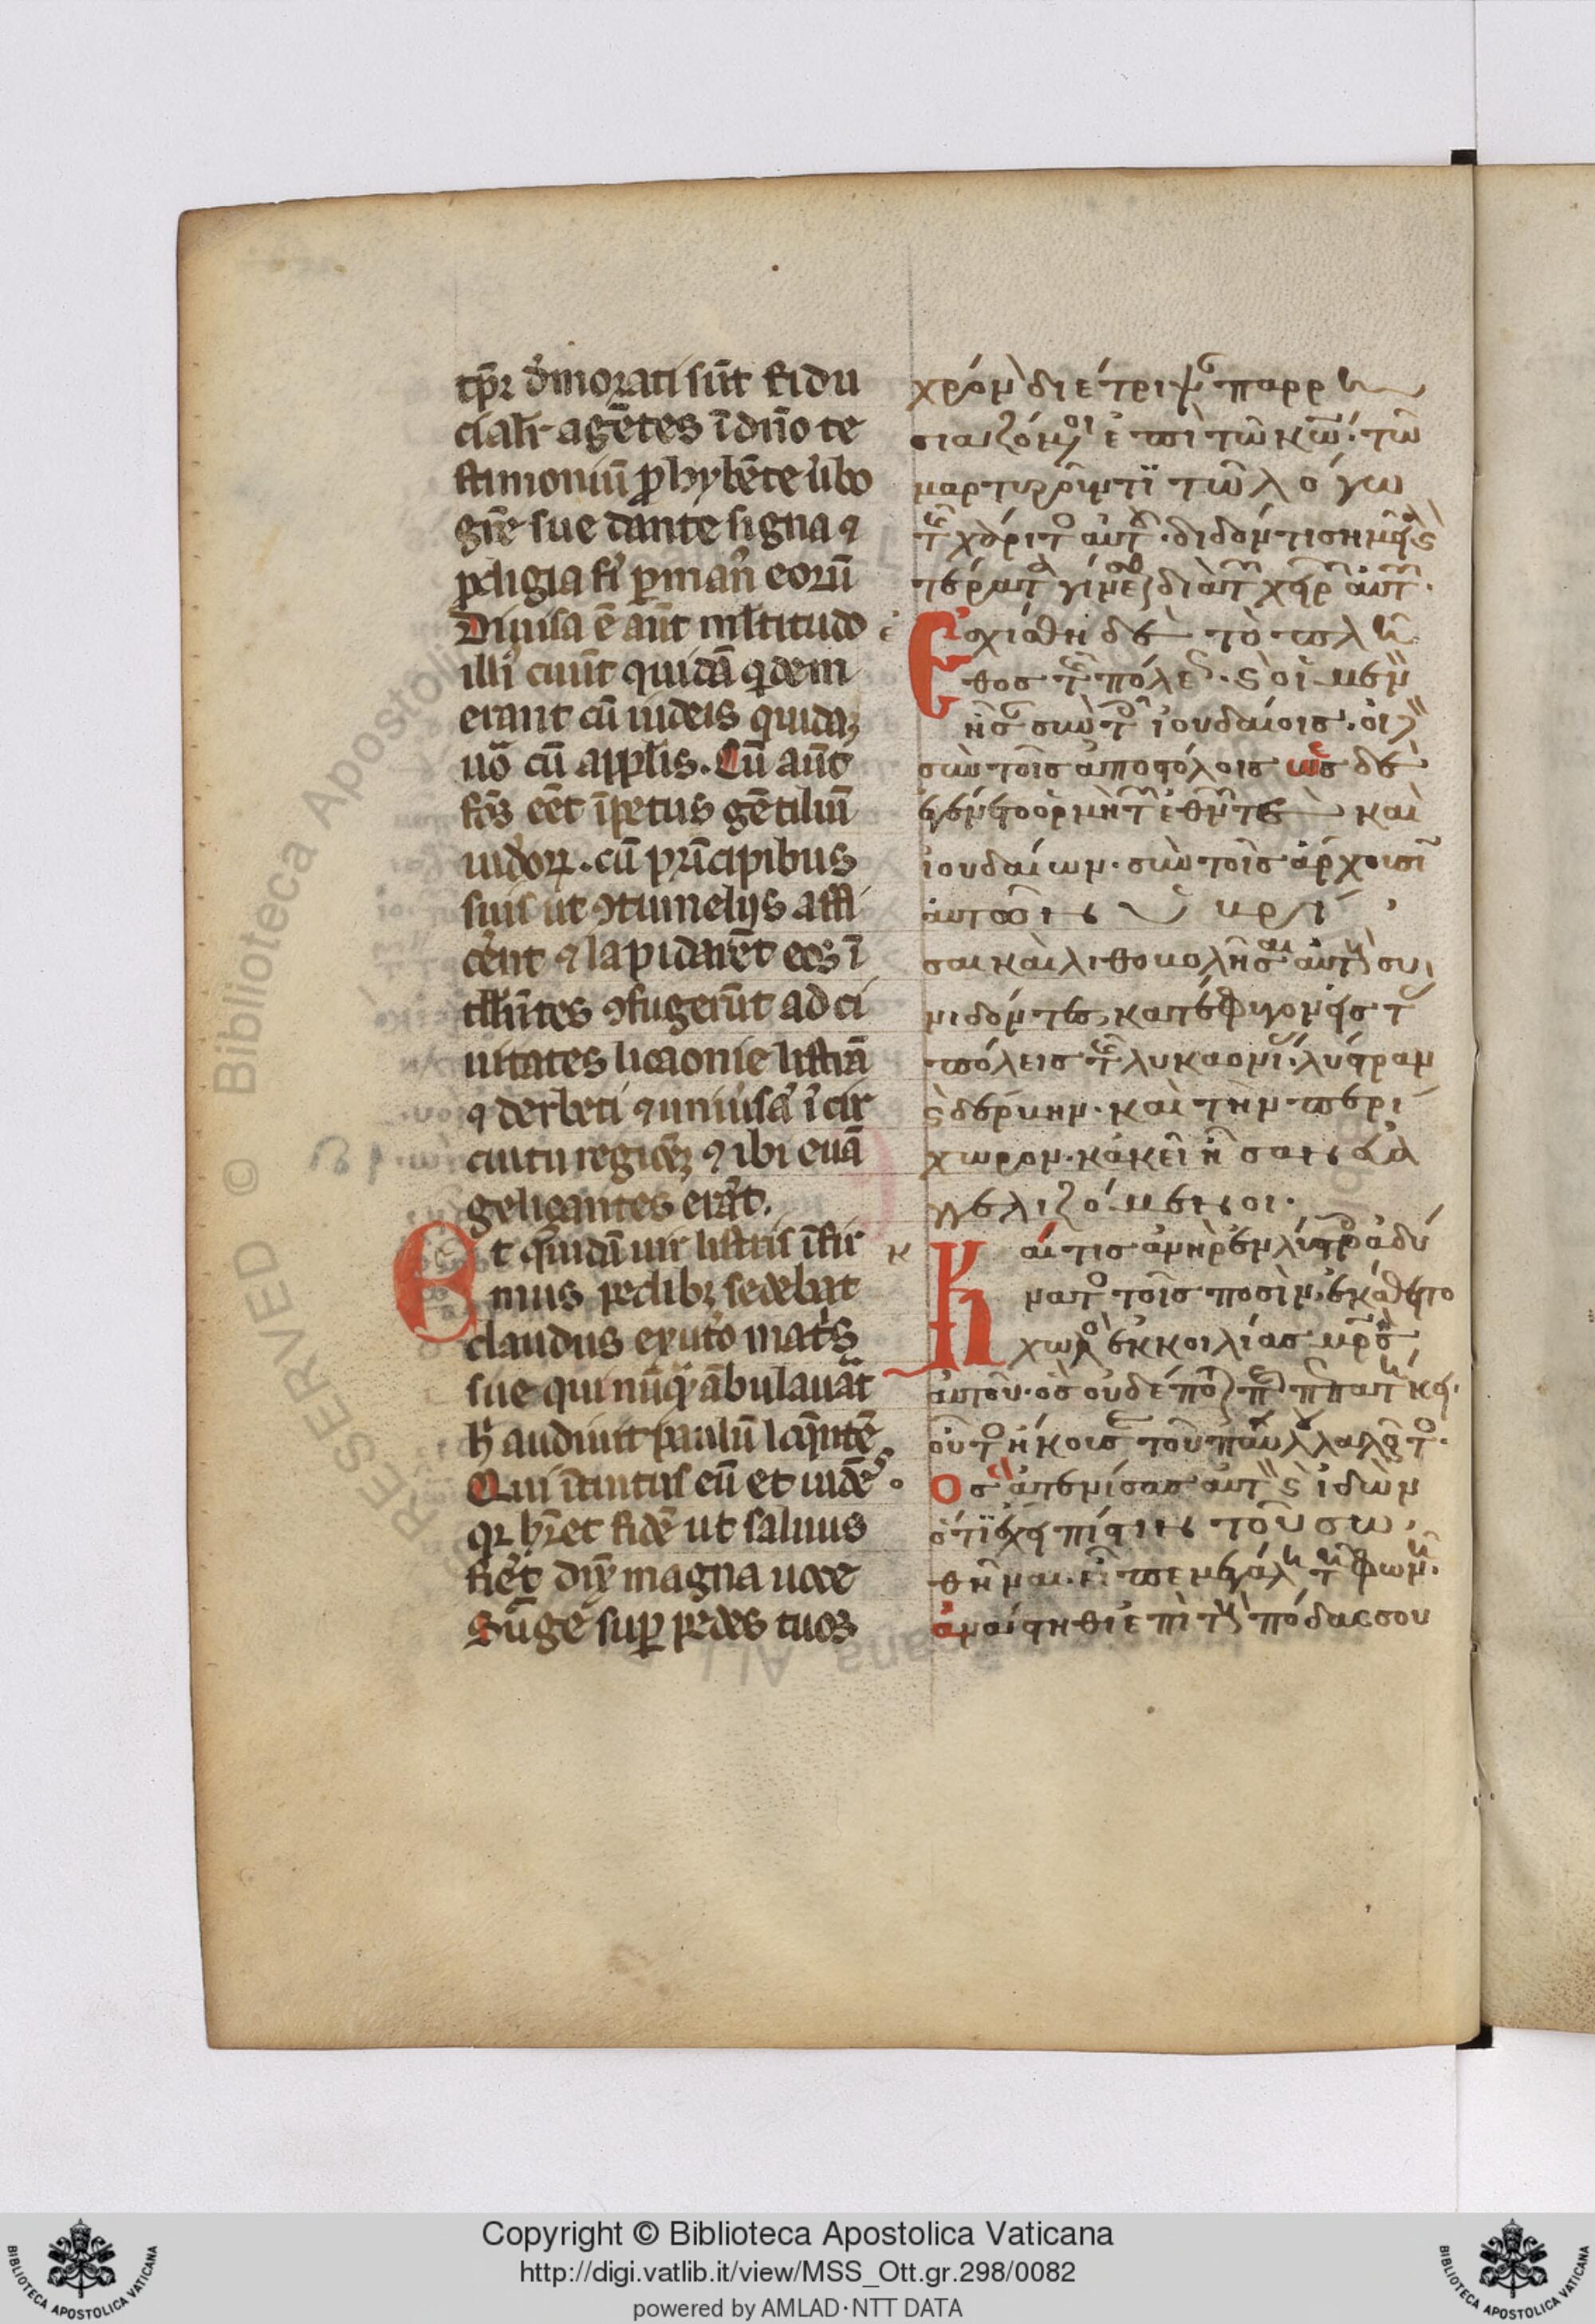 tp̄r dm̓orati sūt fidu
cialr̓ agētes ī dn̄o te
stimoniū phybēte ub̓o
gr̄e sue dante signa ⁊
pdigia fi̓ p man̓ eorū
Diuisa ē aūt ml̄titudo
illi̓ ciuīt quidā qdem
erant cū iudeis quidaꝫ
uō cū appl̄is. Cū aūt
fc̄s eēt īpetus gētiliū
iudeoꝝ. cū prīcipibus
suis ut ꝯtumelijs affi
ce̓nt ⁊ lapidarēt eos ī
tll̄ig̓ntes ꝯfugerūt ad ci
uitates licaonie listrā
⁊ derben ⁊ uniu̓sā ī cir
cuitu regioēꝫ ⁊ ibi euā
geliçantes erāt.
Et quidā uir listris īfir
mus pedibꝫ sedebat
claudus ex ute̓o mat̓s
sue qui nūqͣ ābulauāt
h̓ audiuit paulū loqn̄tē
Qui ītuitus eū et uidēs
qr hr̄et fidē ut saluus
fie̓t dix̄ magna uoce
Surge sup pedes tuos
χρόν διέτριψ παρρη
σιαζόμοι ἐπὶ τῶ κω̄· τῶ
μαρτυροῦντι τῶ λόγω
τ χάριτο αὐτ. διδόντι σημεῖα ϛ
τέρατα γίνεσ διὰ τ χειρ αὐτ.
Ἐσχίσθη δὲ τὸ πλῆ
θος τ πόλε. ϛ οἱ μὲν
ἦσ σὺν τ ἰουδαίοις. οἱ δ
σὺν τοῖς ἀποστόλοις ὡς δὲ
ἐγένετο ὁρμὴ τ ἐθν τε καὶ
ἰουδαίων. σὺν τοῖς ἄρχουσι
αὐτῶν ὑβρί
σαι καὶ λιθοβολῆσαι αὐτ συ
νιδόντες κατέφυγον εἰς τ
πόλεις τ λυκαονι. λύστραν
ϛ δέρβην. καὶ τὴν περί
χωρον. κἀκεῖ ἦσαν εὐα
γγελιζόμενοι.
Καί τις ἀνὴρ ἐν λύστρο ἀδύ
νατο τοῖς ποσὶν. ἐκάθητο
χωλὸ ἐκ κοιλίας μρ̄ς
αὐτοῦ. ὃς οὐδέποτ ππατήκει.
οὗτο ἤκουσ τοῦ παύλ λαλοῦτο.
Ος ἀτενίσας αὐτ ϛ ἰδὼν
ὅτι ἔχει πίστιν τοῦ σω
θῆναι. εἶπε μεγάλη τῆ φωνῆ.
ἀνάστηθι ἐπὶ τοὺς πόδας σου
Copyright © Biblioteca Apostolica Vaticana
http://digi.vatlib.it/view/MSS_Ott.gr.298/0082
powered by AMLAD·NTT DATA
BIBLIOTECA APOSTOLICA VATICANA
BIBLIOTECA APOSTOLICA VATICANA